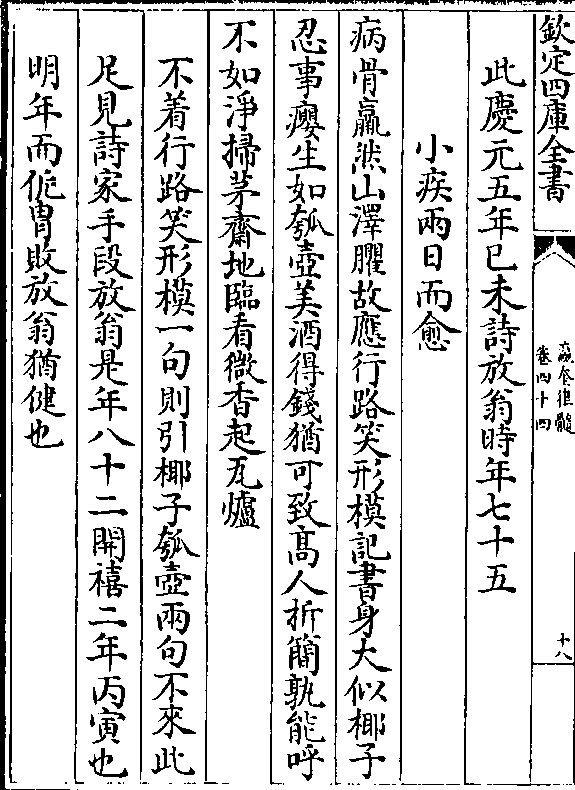 欽定四庫全書
瀛奎律髓
卷四十四
十八
此慶元五年已未詩放翁時年七十五
小疾兩日而愈
病骨羸然山澤臞故應行路笑形模記書身大似椰子
忍事癭生如瓠壺美酒得錢猶可致髙人折簡孰能呼
不如淨掃茅齋地臨看微香起瓦爐
不着行路笑形模一句則引椰子瓠壺兩句不來此
足見詩家手段放翁是年八十二開禧二年丙寅也
明年而侂胄敗放翁猶健也